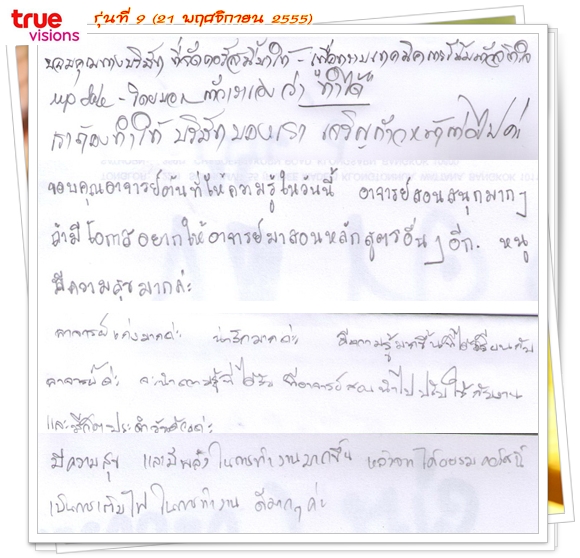 true
visions
รุ่นที่ 9 (21 พฤศจิกายน 2555)
ขอบคุณทางบริษัท ที่จัดคอร์สนี้มาให้ - เพื่อทราบเทคนิคการ
up sale - โดยบอกตัวเองว่า "ทำได้"
เราต้องทำให้ บริษัทของเรา เจริญก้าวหน้าต่อไปค่ะ
ขอบคุณอาจารย์ต้นที่ให้ความรู้ในวันนี้ อาจารย์สอนสนุกมากๆ
ถ้ามีโอกาสอยากให้อาจารย์มาสอนหลักสูตรอื่นๆ อีก. หนู
มีความสุขมากค่ะ
อาจารย์เก่งมากค่ะ น่ารักมากค่ะ มีความรู้มากขึ้นที่ได้เรียนกับ
อาจารย์ค่ะ จะนำความรู้ที่ได้รับ ที่อาจารย์สอนนำไปปรับใช้กับงาน
และชีวิตประจำวันค่ะ
มีความสุข และมีพลังในการทำงานมากขึ้น หลังจากได้อบรมคอร์สนี้
เป็นการเติมไฟในการทำงาน ดีมากๆ ค่ะ